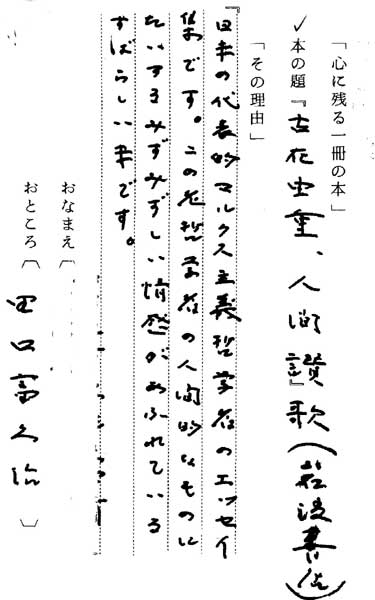 「心に残る一冊の本」
✓本の題『古在由重、人間讃歌(岩波書店)
「その理由」
日本の代表的マルクス主義哲学者のエッセイ
集です。この老哲学者の人間的なものに
たいするみずみずしい情感があふれている
すばらしい本です。
おなまえ〔
おところ〔田口富久治〕